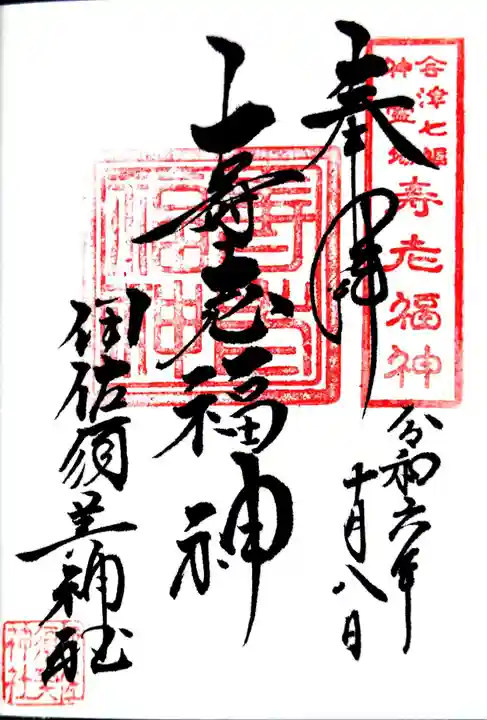 会津七福
神霊場
寿老福神
奉拝
令和六年
十月八日
寿老福神
伊佐須美神社